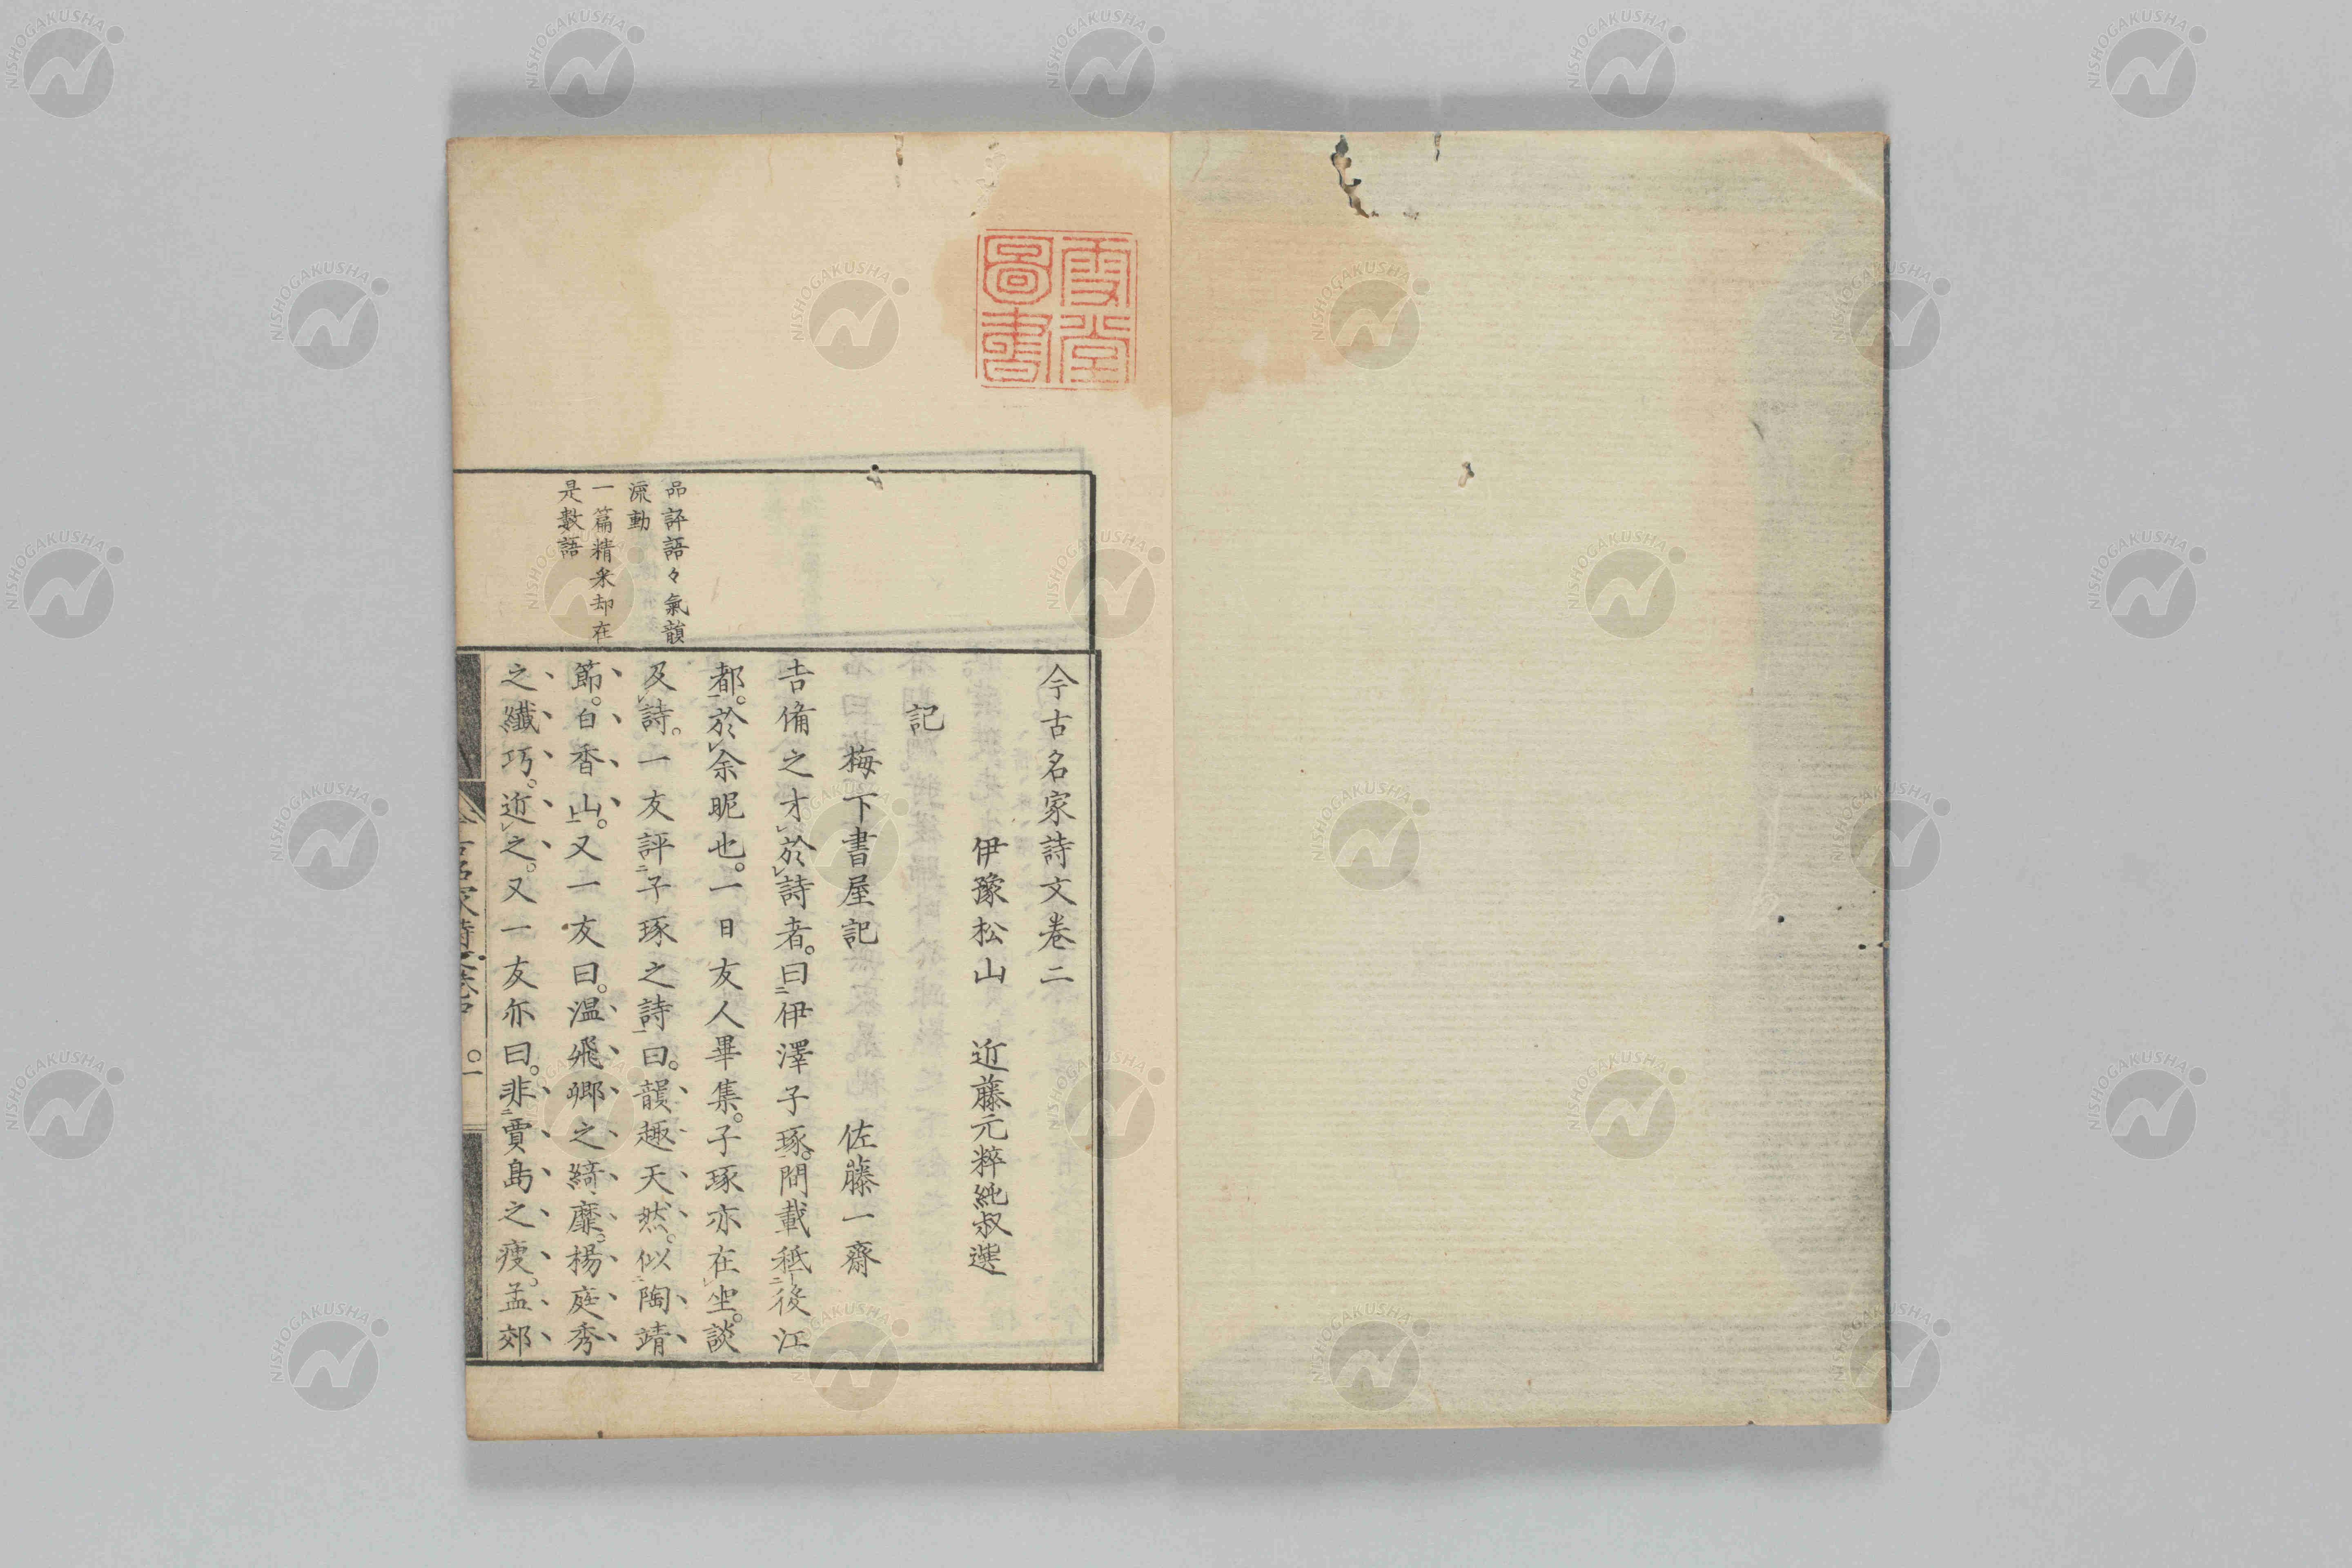 今古名家詩文卷二
伊豫松山 近藤元粹純叔選
記
梅下書屋記 佐藤一齋
吉備之才於詩者。曰伊澤子琢。間載秪後江
都。於余昵也。一日友人畢集。子琢亦在坐。談
及詩。一友評子琢之詩曰。韻趣天然。似陶靖
節。白香山。又一友曰。溫飛卿之綺靡。楊庭秀
之纖巧。近之。又一友亦曰。非賈島之瘦。孟郊
品評語々氣韻
流動
一篇精采却在
是數語
雪堂
圖書
NISHOGAKUSHA